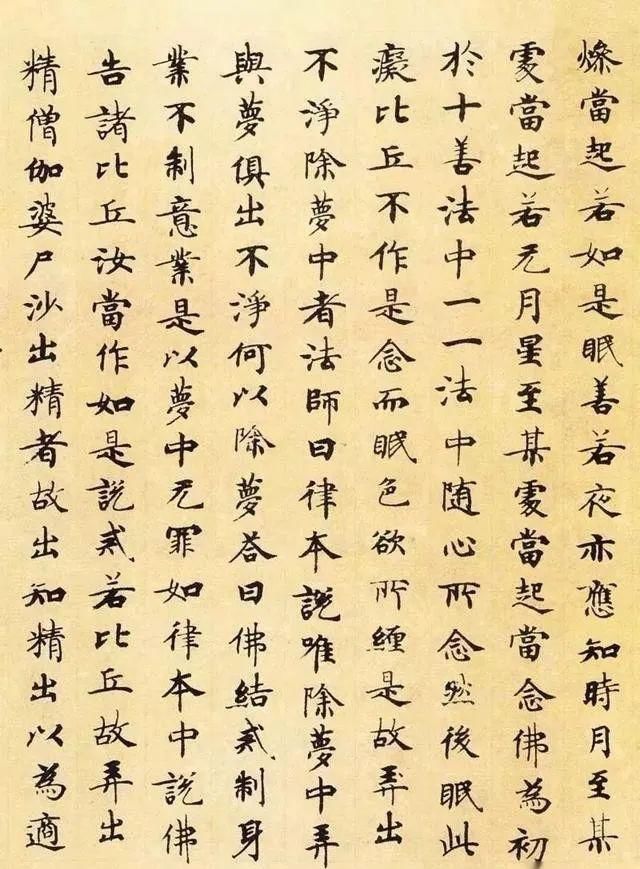 燥當起若如是眠善若夜亦應知時月至某
處當起若无月星至某處當起當念佛為初
於十善法中一一法中随心所念然後眠此
癡比丘不作是念而眠色欲所纏是故弄出
不淨除夢中者法師曰律本說唯除夢中弄
與夢俱出不淨何以除夢荅曰佛結戒制身
業不制意業是以夢中无罪如律本中說佛
告諸比丘汝當作如是說戒若比丘故弄出
精僧伽婆尸沙出精者故出知精出以為適